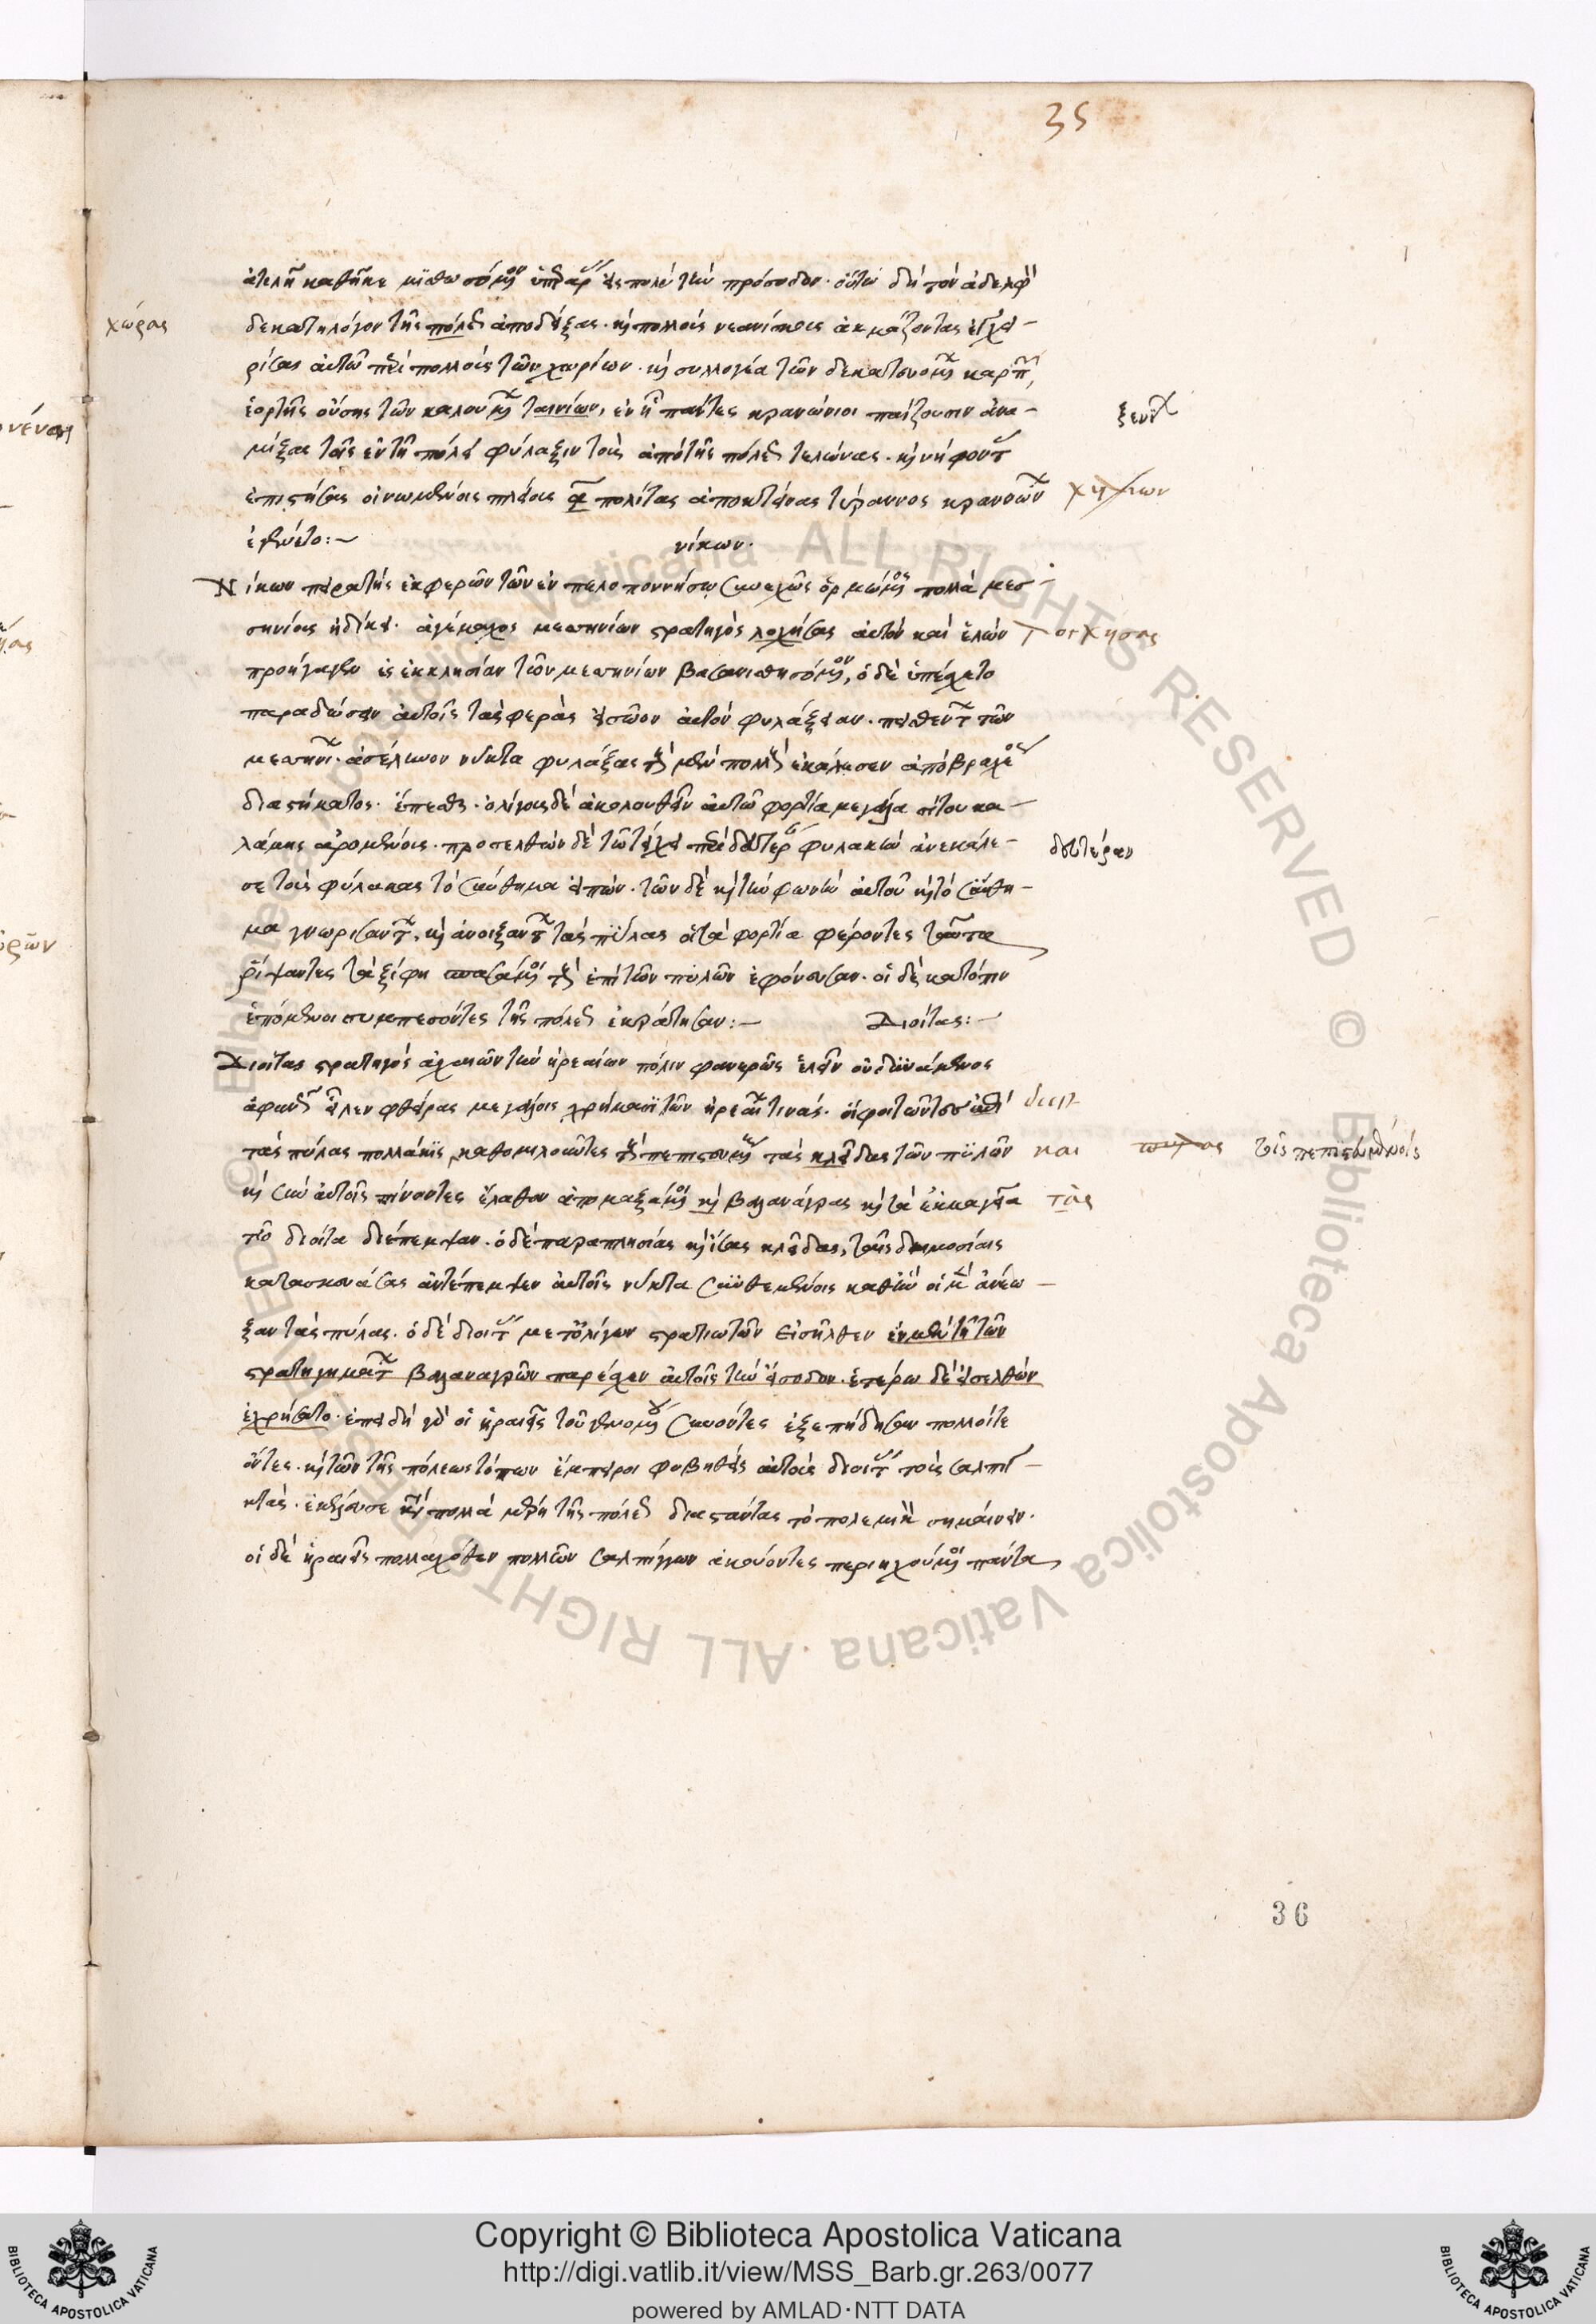 35
ἀτελῆ καθῆκε μισθωσόμενον ὑπὲρ εἰς πολὺ τὴν πρόσοδον. οὕτω δὴ τὸν ἀδελφὸν
χώρας
δεκατηλόγον τῆς πόλεως ἀποδείξας. καὶ πολλοὺς νεανίσκους ἀκμάζοντας ἐγχει-
ρίσας αὐτῷ ἐπὶ πολλοὺς τῶν χωρίων. καὶ συλλογέα τῶν δεκατευομένων καρπῶν,
ἑορτῆς οὔσης τῶν καλουμένων ταινίων, ἐν ᾗ πάντες κρανώνιοι παίζουσιν ἀνα-
μίξας τοῖς ἐν τῇ πόλει φύλαξιν τοὺς ἀπὸ τῆς πόλεως τελώνας. καὶ νήφοντας
ἐπιστήσας οἰνωμένοις πλείους πολίτας ἀποκτείνας τύραννος κρανωνίων
ἐγένετο:~
νίκων.
Νίκων πειρατὴς ἐκ φερῶν τῶν ἐν πελοποννήσῳ συνεχῶς ὁρμώμενος πολλὰ μεσ-
σηνίους ἠδίκει. ἀγέμαχος μεσσηνίων στρατηγὸς λοχήσας αὐτὸν καὶ ἑλὼν
προήγαγεν εἰς ἐκκλησίαν τῶν μεσσηνίων βασανισθησόμενον, ὁ δὲ ὑπέσχετο
παραδώσειν αὐτοῖς τὰς φερὰς εἰ σῶον αὐτὸν φυλάξειαν. πεισθέντων τῶν
μεσσηνίων. ἀσέλινον νύκτα φυλάξας τοὺς μὲν πολλοὺς ἐκέλευσεν ἀπὸ βραχέος
διαστήματος. ἕπεσθαι. ὀλίγους δὲ ἀκολουθεῖν αὐτῷ φορτία μεγάλα σίτου κα-
λάμης αἰρομένους. προσελθὼν δὲ τῷ τείχει περὶ δευτέραν φυλακὴν ἀνεκάλε-
δευτέραν
σε τοὺς φύλακας τὸ σύνθημα εἰπών. τῶν δὲ καὶ τὴν φωνὴν αὐτοῦ καὶ τὸ σύνθη-
μα γνωρισάντων, καὶ ἀνοιξάντων τὰς πύλας οἱ τὰ φορτία φέροντες ταῦτα
ῥίψαντες τὰ ξίφη σπασάμενοι τοὺς ἐπὶ τῶν πυλῶν ἐφόνευσαν. οἱ δὲ κατόπιν
ἑπόμενοι συμπεσόντες τῆς πόλεως ἐκράτησαν:~
Διοίτας:~
Διοίτας στρατηγὸς ἀχαιῶν τὴν ἡραιέων πόλιν φανερῶς ἑλεῖν οὐ δυνάμενος
ἀφανῶς εἷλεν φθείρας μεγάλοις χρήμασι τῶν ἡραιέων τινάς. οἱ φοιτῶντες ἐπὶ
τὰς πύλας πολλάκις, καθομιλοῦντες τοὺς πεπιστευμένους τὰς κλεῖδας τῶν πυλῶν
και
τοῖς πεπιστευμένοις
καὶ σὺν αὐτοῖς πίνοντες ἔλαθον ἀπομαξάμενοι καὶ βαλανάγρας καὶ τὰ ἐκμαγεῖα
τὰς
τῷ διοίτα διέπεμψαν. ὁ δὲ παραπλησίας καὶ ἴσας κλεῖδας, ταῖς δημοσίαις
κατασκευάσας ἀντέπεμψεν αὐτοῖς νύκτα συνθεμένοις καθ᾽ ἣν οἱ μὲν ἀνέῳ-
ξαν τὰς πύλας. ὁ δὲ διοίτας μετ᾽ ὀλίγων στρατιωτῶν εἰσῆλθεν ἐν μὲν τῇ τῶν
στρατηγημάτων βαλαναγρῶν παρέχειν αὐτοῖς τὴν εἴσοδον. ἑτέρῳ δὲ εἰσελθὼν
ἐχρήσατο. ἐπειδὴ γὰρ οἱ ἡραιεῖς τοῦ γενομένου συνιόντες ἐξεπήδησαν πολλοί τε
ὄντες. καὶ τῶν τῆς πόλεως τόπων ἔμπειροι φοβηθεὶς αὐτοὺς διοίτας τοὺς σαλπι-
κτὰς. ἐκέλευσε κατὰ πολλὰ μέρη τῆς πόλεως διαστάντας τὸ πολεμικὸν σημαίνειν.
οἱ δὲ ἡραιεῖς πολλαχόθεν πολλῶν σαλπίγγων ἀκούοντες περιηχούμενοι πάντα
36
Copyright © Biblioteca Apostolica Vaticana
http://digi.vatlib.it/view/MSS_Barb.gr.263/0077
powered by AMLAD·NTT DATA